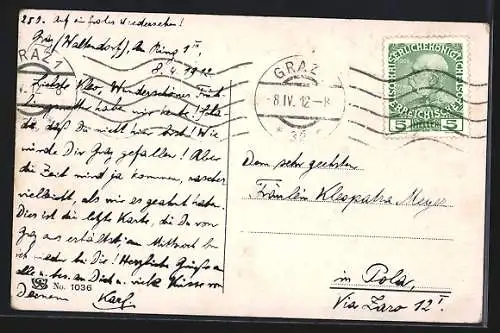 253. Auf ein frohes Wiedersehen!
Graz (Waltendorf), Am Ring 1ᴵᴵ,
8.4.1912
Liebste Kleo, Wunderschönes Früh
haben wir heute! Scha-
de, daß Du nicht hier bist! Wie
würde Dir Graz gefallen! Aber
die Zeit wird ja kommen, rascher
vielleicht, als wir es geahnt haben.
Dies ist die letzte Karte, die Du von
Graz aus erhältst; am Mittwoch bin
ich wieder bei Dir! Herzliche Grüße an
alle u. bes. an Dich u. viele Küsse von
Deinem Karl
No. 1036
GRAZ 1
GRAZ
-8.IV.12-8
KAISERLICHE KÖNIGL
OESTERREICHISCHE
5 HELLER 5
Dem sehr geehrten
Fräulein Kleopatra Meyer
in Pola,
Via Zaro 12ᴵ.